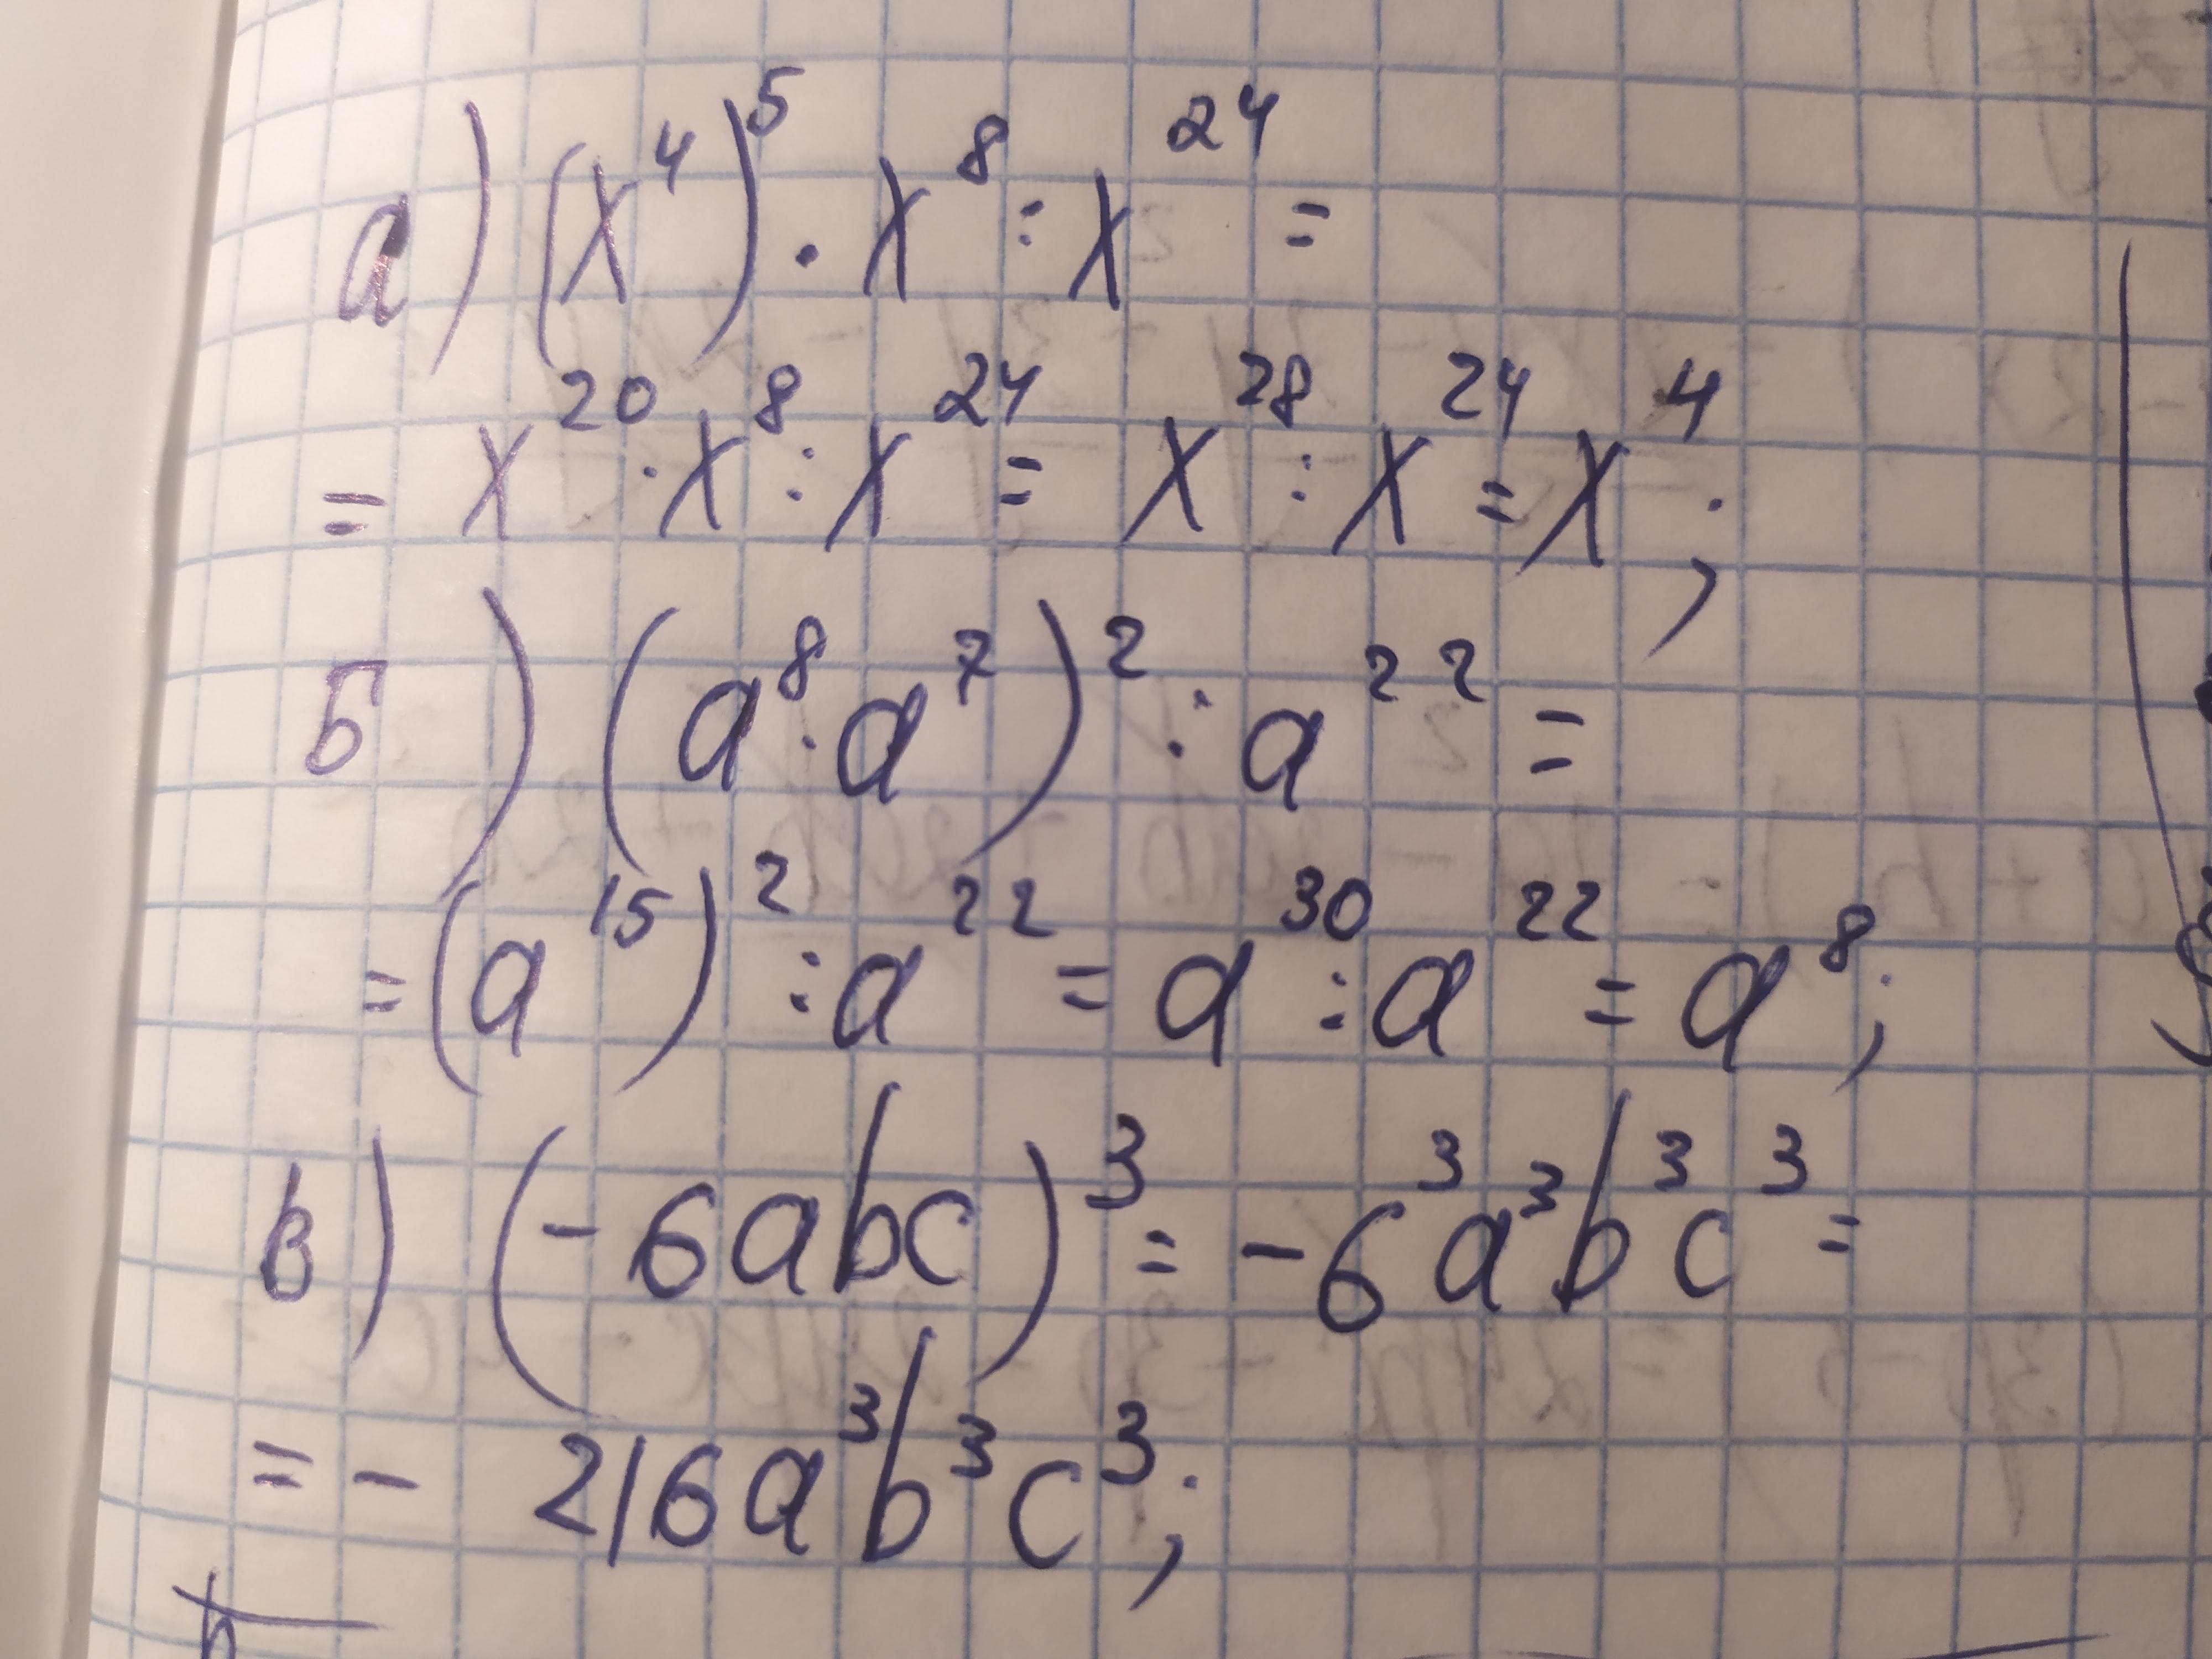 а) (x⁴)⁵ · x⁸ : x²⁴ =
= x²⁰ · x⁸ : x²⁴ = x²⁸ : x²⁴ = x⁴ ;
б) (a⁸ · a⁷)² : a²² =
= (a¹⁵)² : a²² = a³⁰ : a²² = a⁸ ;
в) (-6abc)³ = -6³a³b³c³ =
= - 216a³b³c³ ;